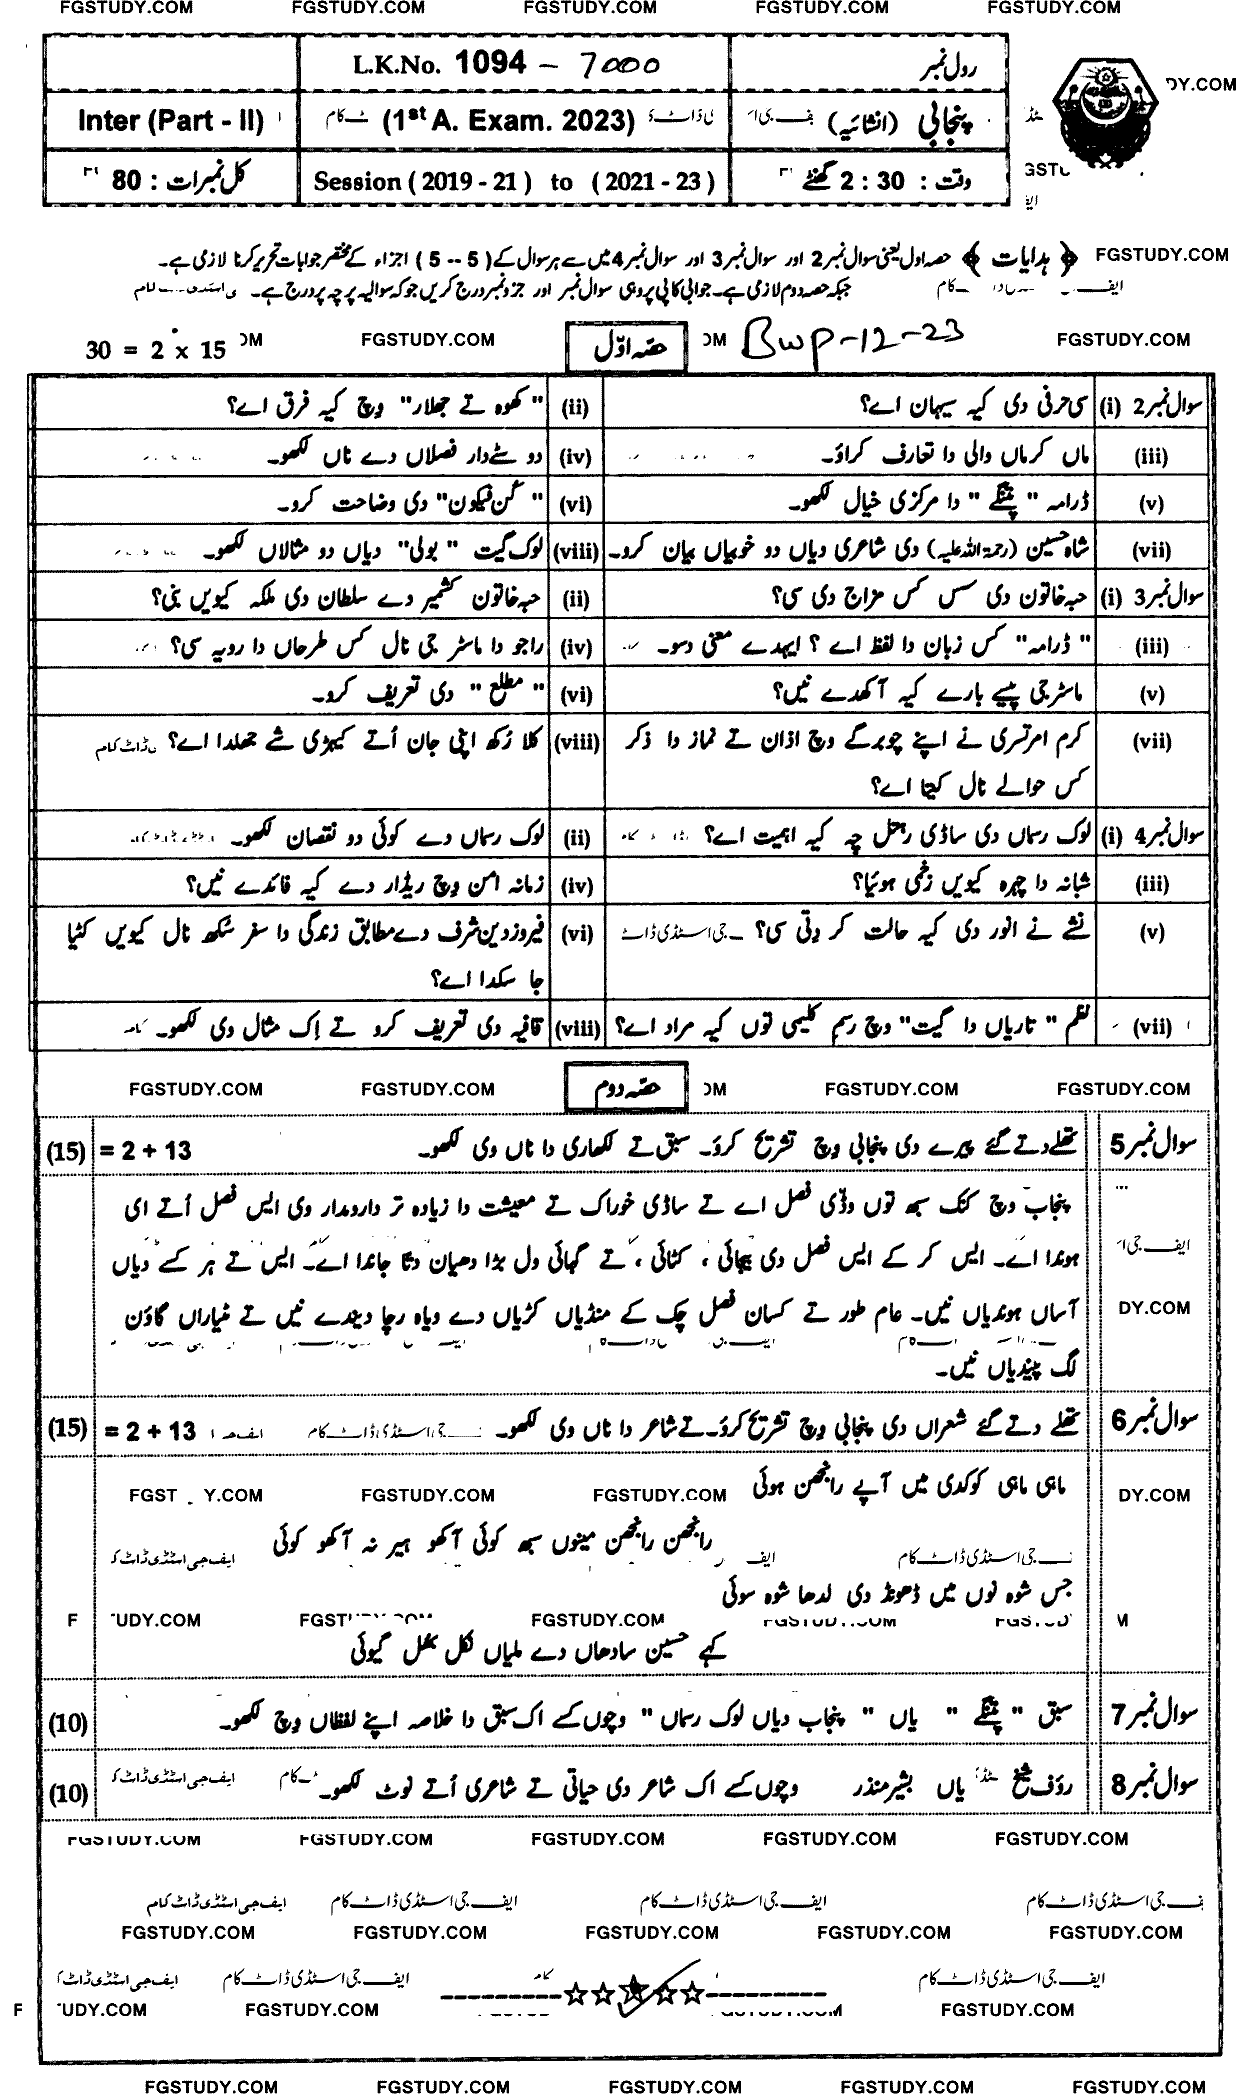 FGSTUDY.COM FGSTUDY.COM FGSTUDY.COM FGSTUDY.COM FGSTUDY.COM
رول نمبر L.K.No. 1094 – 7000
پنجابی (انشائیہ) (1st A. Exam. 2023) Inter (Part - II)
وقت : 2 : 30 گھنٹے Session ( 2019 - 21 ) to ( 2021 - 23 ) کل نمبرات : 80
﴿ ہدایات ﴾ حصہ اول یعنی سوال نمبر 2 اور سوال نمبر 3 اور سوال نمبر 4 میں سے ہر سوال کے ( 5 -- 5 ) اجزاء کے مختصر جوابات تحریر کرنا لازمی ہے۔ FGSTUDY.COM
جبکہ حصہ دوم لازمی ہے۔ جوابی کاپی پر وہی سوال نمبر اور جزو نمبر درج کریں جو کہ سوالیہ پرچہ پر درج ہے۔
30 = 2 x 15 FGSTUDY.COM حصّہ اوّل Bwp-12-23 FGSTUDY.COM
سوال نمبر 2 (i) سی حرفی دی کیہ سیہان اے؟ (ii) " کھوہ تے جھلار" وچ کیہ فرق اے؟
(iii) ماں کرماں والی دا تعارف کراؤ۔ (iv) دو سٹے دار فصلاں دے ناں لکھو۔
(v) ڈرامہ " پتنگے " دا مرکزی خیال لکھو۔ (vi) " کُن فیکون" دی وضاحت کرو۔
(vii) شاہ حسین (رحمۃ اللہ علیہ) دی شاعری دیاں دو خوبیاں بیان کرو۔ (viii) لوک گیت " بولی" دیاں دو مثالاں لکھو۔
سوال نمبر 3 (i) حبہ خاتون دی سس کس مزاج دی سی؟ (ii) حبہ خاتون کشمیر دے سلطان دی ملکہ کیویں بنی؟
(iii) " ڈرامہ" کس زبان دا لفظ اے ؟ ایہدے معنی دسو۔ (iv) راجو دا ماسٹر جی نال کس طرحاں دا رویہ سی؟
(v) ماسٹر جی پیسے بارے کیہ آکھدے نیں؟ (vi) " مطلع " دی تعریف کرو۔
(vii) کرم امرتسری نے اپنے چوبرگے وچ اذان تے نماز دا ذکر (viii) کلا رُکھ اپنی جان اُتے کیہڑی شے جھلدا اے؟
کس حوالے نال کیتا اے؟
سوال نمبر 4 (i) لوک رسماں دی ساڈی رہتل چہ کیہ اہمیت اے؟ (ii) لوک رسماں دے کوئی دو نقصان لکھو۔
(iii) شبانہ دا چہرہ کیویں زخمی ہوئیا؟ (iv) زمانہ امن وچ ریڈار دے کیہ فائدے نیں؟
(v) نشے نے انور دی کیہ حالت کر دِتی سی؟ (vi) فیروز دین شرف دے مطابق زندگی دا سفر سُکھ نال کیویں کٹیا
جا سکدا اے؟
(vii) نظم " تاریاں دا گیت" وچ رسمِ کلیمی توں کیہ مراد اے؟ (viii) قافیہ دی تعریف کرو تے اِک مثال دی لکھو۔
FGSTUDY.COM FGSTUDY.COM حصّہ دوم FGSTUDY.COM FGSTUDY.COM
سوال نمبر 5 تھلے دتے گئے پیرے دی پنجابی وچ تشریح کرؤ۔ سبق تے لکھاری دا ناں وی لکھو۔ (15) = 2 + 13
پنجاب وچ کنک سبھ توں وڈی فصل اے تے ساڈی خوراک تے معیشت دا زیادہ تر دارومدار وی ایس فصل اُتے ای
ہوندا اے۔ ایس کر کے ایس فصل دی بیجائی ، کٹائی ، تے گہائی ول بڑا دھیان دتا جاندا اے۔ ایس تے ہر کسے دیاں
آساں ہوندیاں نیں۔ عام طور تے کسان فصل چک کے منڈیاں کڑیاں دے ویاہ رچا دیندے نیں تے مُیاراں گاؤن
لگ پیندیاں نیں۔
سوال نمبر 6 تھلے دتے گئے شعراں دی پنجابی وچ تشریح کرؤ۔ تے شاعر دا ناں وی لکھو۔ (15) = 2 + 13
ماہی ماہی کوکدی میں آپے رانجھن ہوئی
FGSTUDY.COM FGSTUDY.COM
رانجھن رانجھن مینوں سبھ کوئی آکھو ہیر نہ آکھو کوئی
جس شوہ نوں میں ڈھونڈ دی لدھا شوہ سوئی
FGSTUDY.COM
کہے حسین سادھاں دے ملیاں نکل بھل گیوئی
سوال نمبر 7 سبق " پتنگے " یاں " پنجاب دیاں لوک رسماں " وچوں کسے اک سبق دا خلاصہ اپنے لفظاں وچ لکھو۔ (10)
سوال نمبر 8 رؤف شیخ یاں بشیر منذر وچوں کسے اک شاعر دی حیاتی تے شاعری اُتے نوٹ لکھو۔ (10)
FGSTUDY.COM FGSTUDY.COM FGSTUDY.COM FGSTUDY.COM FGSTUDY.COM
ایف جی اسٹڈی ڈاٹ کام ایف جی اسٹڈی ڈاٹ کام ایف جی اسٹڈی ڈاٹ کام
FGSTUDY.COM FGSTUDY.COM FGSTUDY.COM FGSTUDY.COM FGSTUDY.COM
ایف جی اسٹڈی ڈاٹ کام ایف جی اسٹڈی ڈاٹ کام
FGSTUDY.COM FGSTUDY.COM
FGSTUDY.COM FGSTUDY.COM FGSTUDY.COM FGSTUDY.COM FGSTUDY.COM